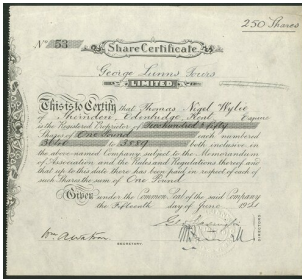 250 Shares
No 53
Share Certificate
George Lunns Tours
LIMITED
This is to Certify that Thomas Nigel Wylie
of Edenbridge, Kent Esquire
is the Registered Proprietor of Two Hundred & fifty
Shares of One Pound each numbered
to 3889 both inclusive, in
the above-named Company subject to the Memorandum
of Association and the Rules and Regulations thereof and
that up to this date there has been paid in respect of each
such Share the sum of One Pound.
Given under the Common Seal of the said Company
the Fifteenth day of June
DIRECTORS
SECRETARY